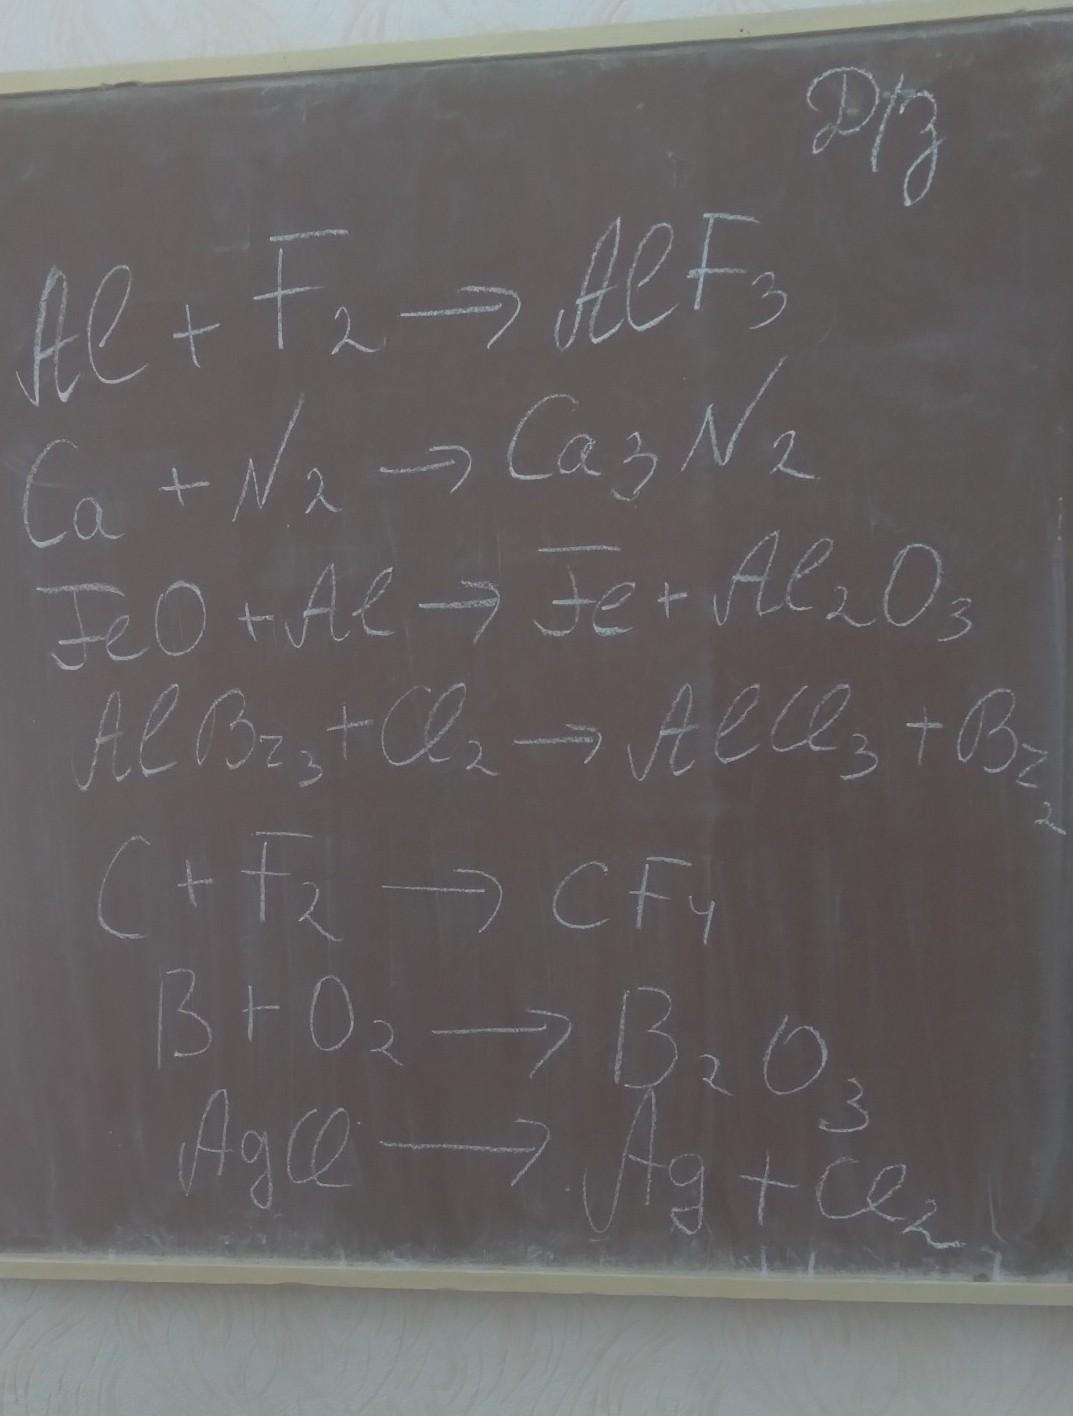 Д/з
Al + F₂ → AlF₃
Ca + N₂ → Ca₃N₂
FeO + Al → Fe + Al₂O₃
AlBr₃ + Cl₂ → AlCl₃ + Br₂
C + F₂ → CF₄
B + O₂ → B₂O₃
AgCl → Ag + Cl₂